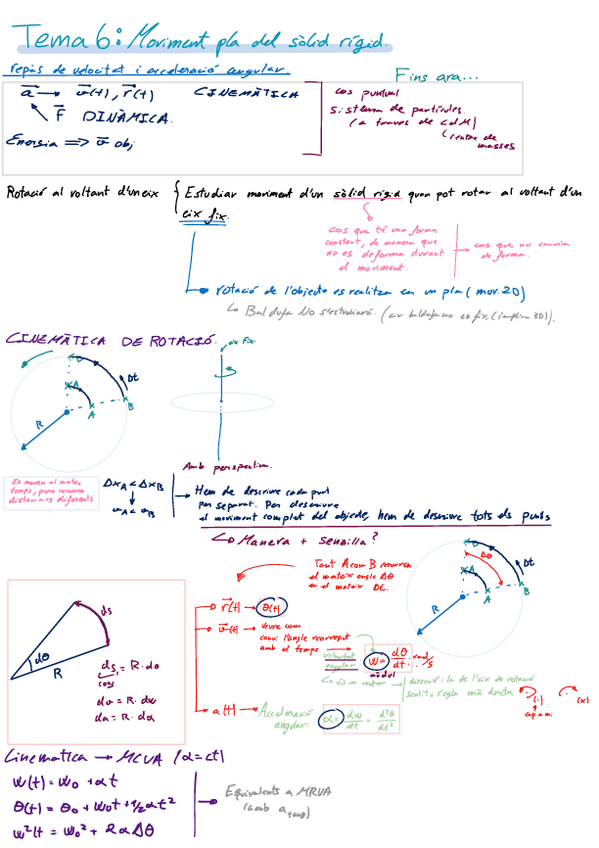 Tema 6: Moviment pla del sòlid rígid.
repàs de velocitat i acceleració angular.
Fins ara...
a → v(t), r(t) CINEMÀTICA
F DINÀMICA.
Energia => v obj
cos puntual
Sistema de partícules.
(a través de CdM)
(centre de
masses
Rotació al voltant d'un eix { Estudiar moviment d'un sòlid rígid quan pot rotar al voltant d'un
eix fix.
cos que té una forma
constant, de manera que
no es deforma durant
el moviment.
cos que no canvia
de forma.
rotació de l'objecte es realitza en un pla (mov. 2D)
La Baldufa No s'estudiarà. (eix baldufa no es fix, (implica 3D).
CINEMÀTICA DE ROTACIÓ.
eix fix.
A
B
Δt
R
A
B
Amb perspectiva.
Es mouen al mateix
temps, però recorren
distàncies diferents
ΔxA < ΔxB
vA < vB
Hem de descriure cada punt
per separat. Per descriure
el moviment complet del objecte, hem de descriure tots els punts
Manera + senzilla?
Tant A com B recorren
el mateix angle Δθ
en el mateix Δt.
Δθ
Δt
A
B
R
ds
dθ
R
ds = R · dθ
dv = R · dw
da = R · dα
r(t) → θ(t)
v(t) → Veure com
canvi l'angle recorregut
amb el temps
velocitat
angular
w = dθ/dt rad/s
mòdul
Es un vector
direcció: la de l'eix de rotació
sentit: regla mà dreta
(·)
(x)
cap a mi
a(t) → Acceleració
angular.
α = dw/dt = d²θ/dt²
Cinemàtica → MCUA (α = ct)
w(t) = w0 + αt
θ(t) = θ0 + w0t + 1/2 αt²
w²(t = w0² + 2αΔθ
Equivalents a MRUA
(amb a